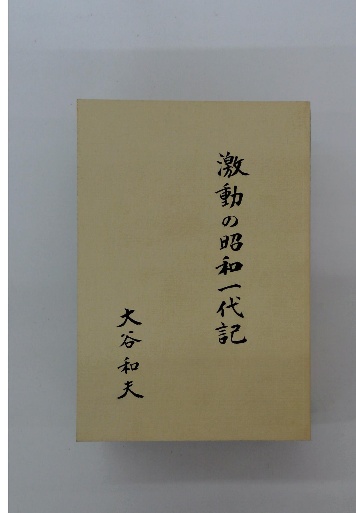 激動の昭和一代記
大谷和夫